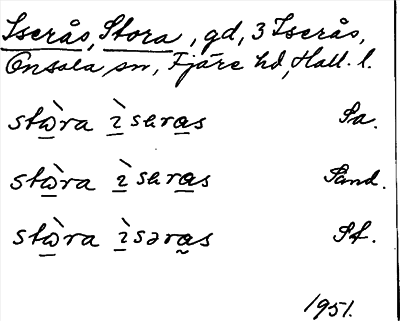 Iserås, Stora, gd, 3 Iserås,
Onsala sn, Fjäre hd, Hall. l.
stὼ̲ra ì̲sera̲s Sa.
stὼ̲ra ì̲sera̲s Sand.
stὼ̲ra ì̲səra̰s Sf.
1951.